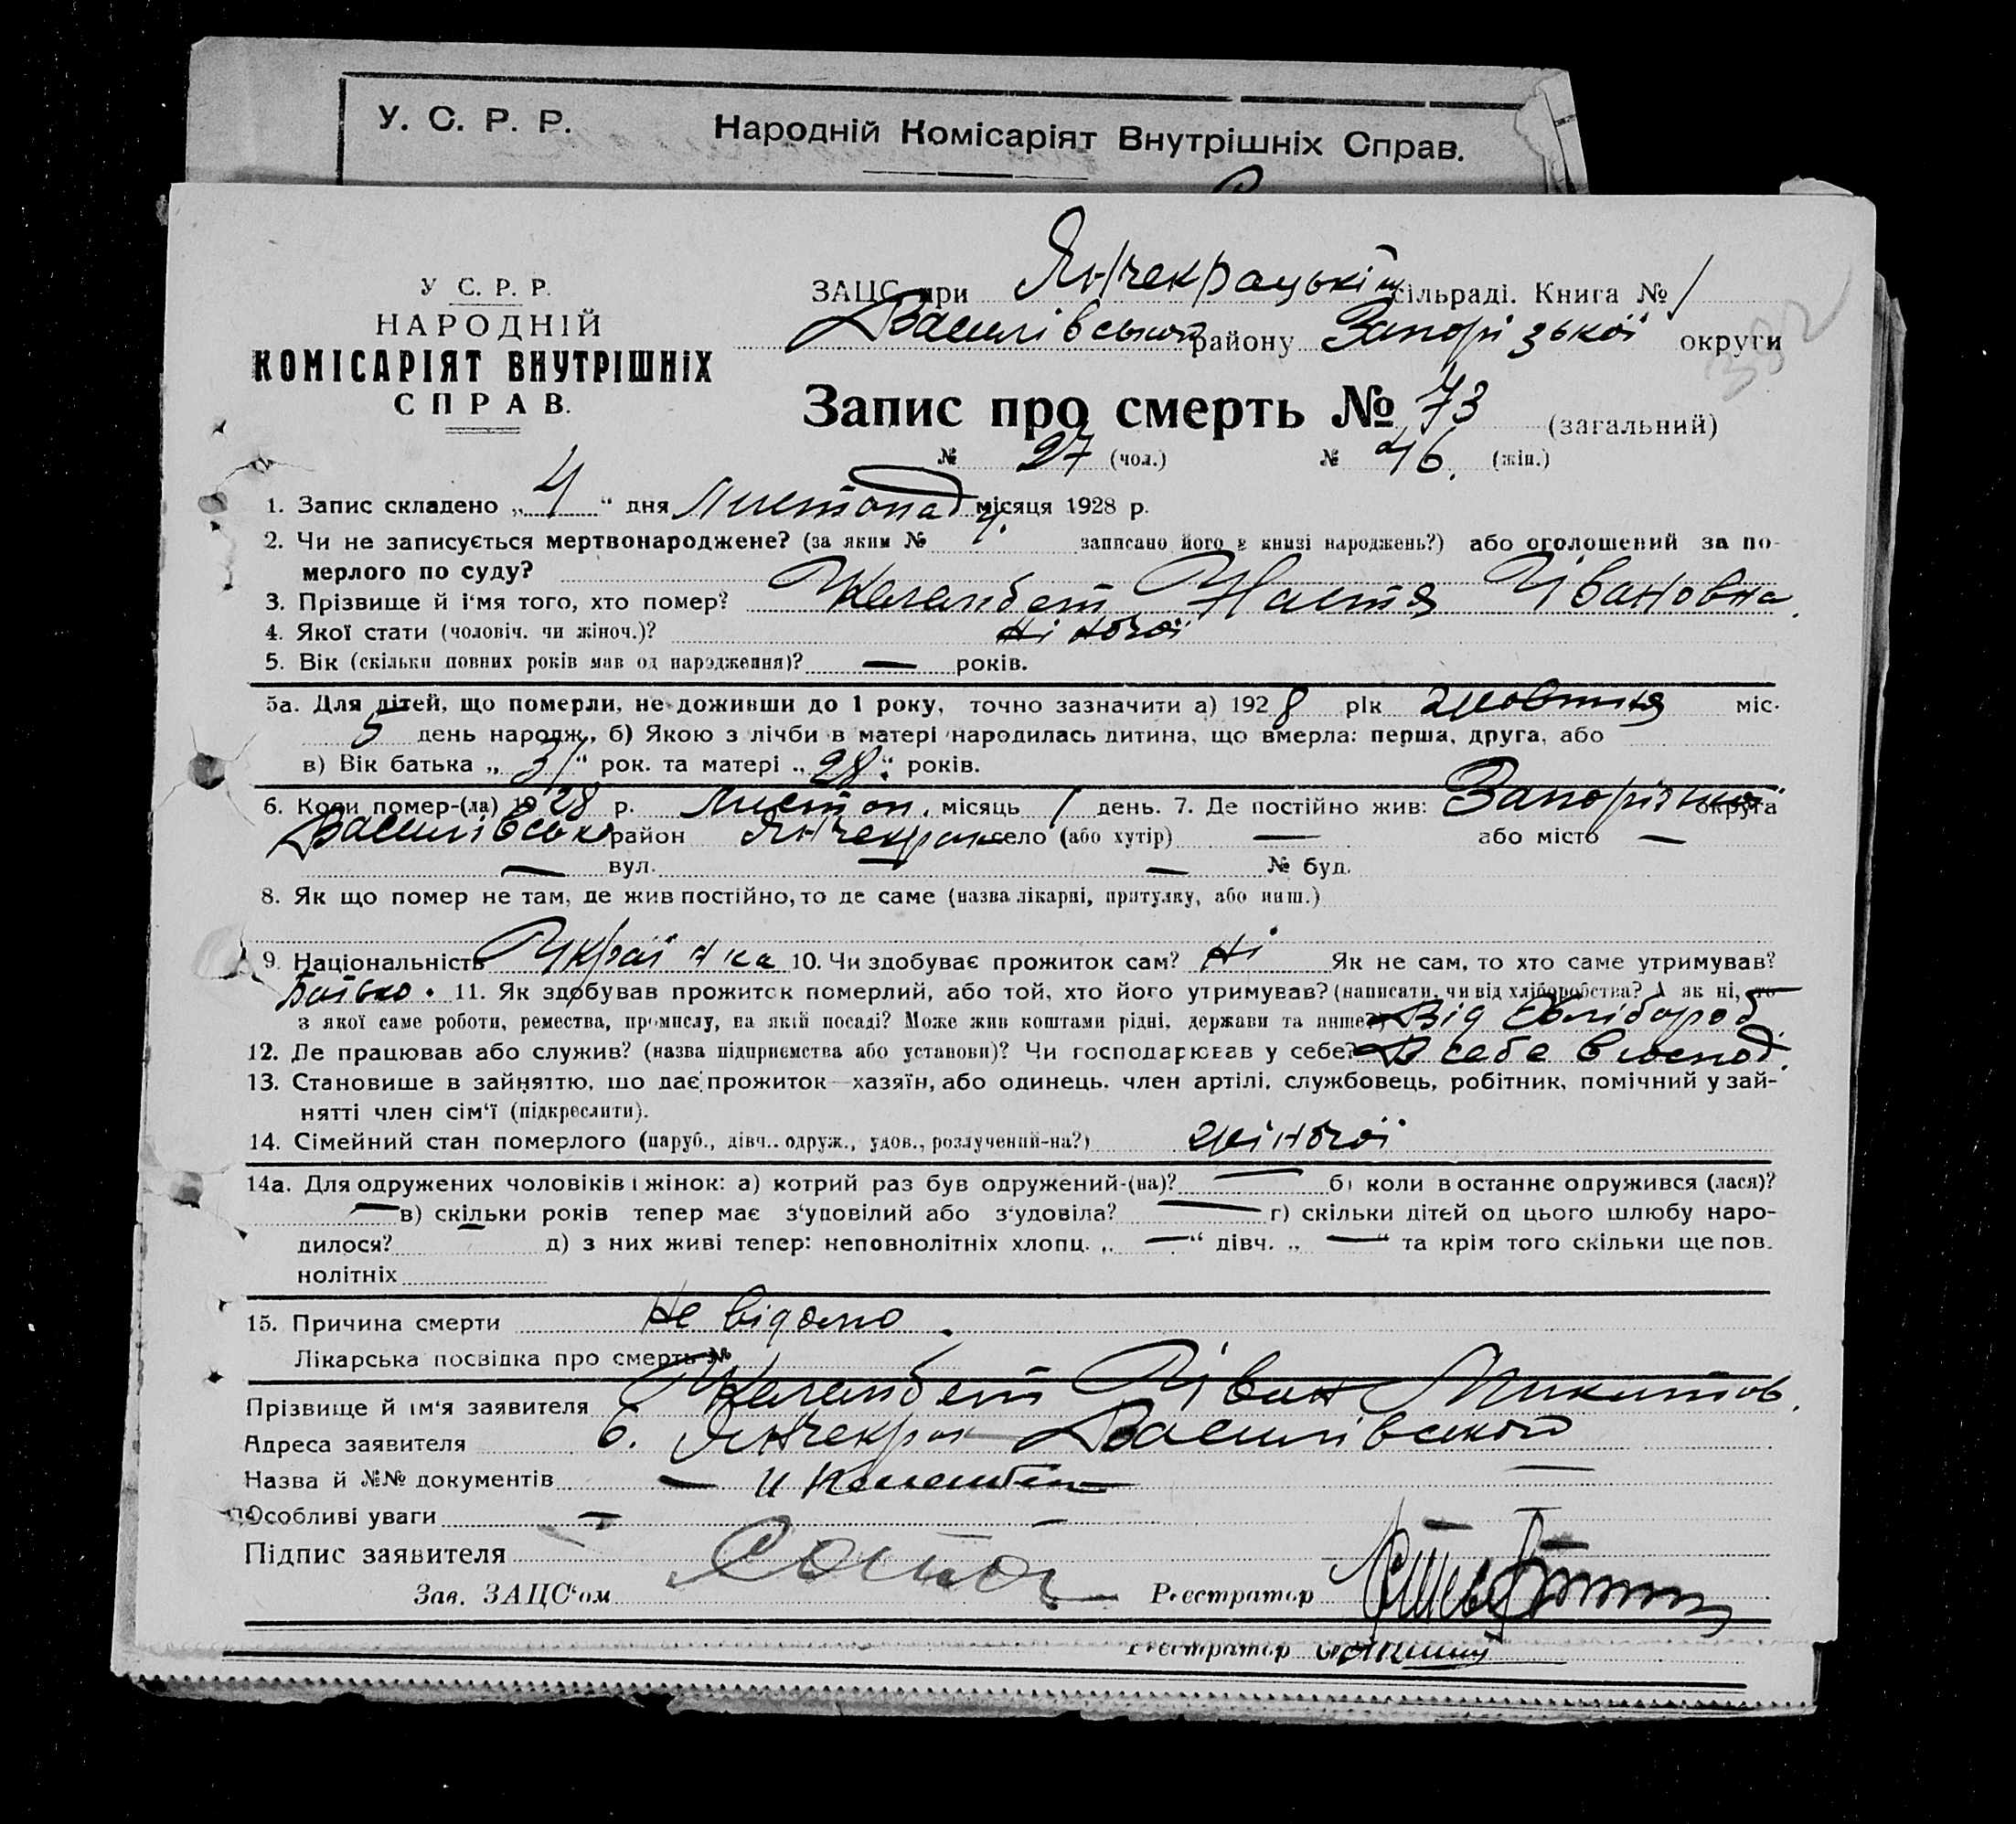 У. С. Р. Р. Народній Комісаріят Внутрішніх Справ.
У С. Р. Р.
НАРОДНІЙ
КОМІСАРІЯТ ВНУТРІШНІХ
СПРАВ.
ЗАЦС при Янчекрацькій сільраді. Книга № 1
Василівського району Запорізької округи
332
Запис про смерть № 73 (загальний)
№ 27 (чол.) № 46. (жін.)
1. Запис складено „4“ дня Листопада місяця 1928 р.
2. Чи не записується мертвонароджене? (за яким № записано його в книзі народжень?) або оголошений за по-
мерлого по суду?
3. Прізвище й і'мя того, хто помер? Настя Івановна.
4. Якої стати (чоловіч. чи жіноч.)? жіночої
5. Вік (скільки повних років мав од народження)? — років.
5а. Для дітей, що померли, не доживши до 1 року, точно зазначити а) 1928 рік жовтня міс.
5 день народж., б) Якою з лічби в матері народилась дитина, що вмерла: перша, друга, або
в) Вік батька „31“ рок. та матері „28“ років.
6. Коли помер-(ла) 1928 р. Листоп. місяць 1 день. 7. Де постійно жив: округа
район Янчекрак село (або хутір) — або місто —
— вул. — № буд.
8. Як що помер не там, де жив постійно, то де саме (назва лікарні, притулку, або инш.)
9. Національність Українка 10. Чи здобуває прожиток сам? Ні Як не сам, то хто саме утримував?
Батько. 11. Як здобував прожиток померлий, або той, хто його утримував? (написати, чи від хліборобства? А як ні, то
з якої саме роботи, ремества, промислу, на якій посаді? Може жив коштами рідні, держави та инше?) Від Хлібороб.
12. Де працював або служив? (назва підприємства або установи)? Чи господарював у себе? В себе в господ.
13. Становище в зайняттю, що дає прожиток—хазяїн, або одинець, член артілі, службовець, робітник, помічний у зай-
нятті член сім'ї (підкреслити).
14. Сімейний стан померлого (паруб., дівч.. одруж., удов., розлучений-на?) жіночої
14а. Для одружених чоловіків і жінок: а) котрий раз був одружений-(на)? — б) коли востаннє одружився (лася)?
— в) скільки років тепер має з'уповілий або з'удовіла? — г) скільки дітей од цього шлюбу наро-
дилося? — д) з них живі тепер: неповнолітніх хлопц. „—“ дівч. „—“ та крім того скільки ще пов.
нолітніх
15. Причина смерти Не відомо.
Лікарська посвідка про смерть №
Прізвище й ім'я заявителя Іван Микитов.
Адреса заявителя с. Янчекрак Василівського
Назва й №№ документів —
Особливі уваги —
Підпис заявителя
Зав. ЗАЦС'ом Реєстратор
Реєстратор